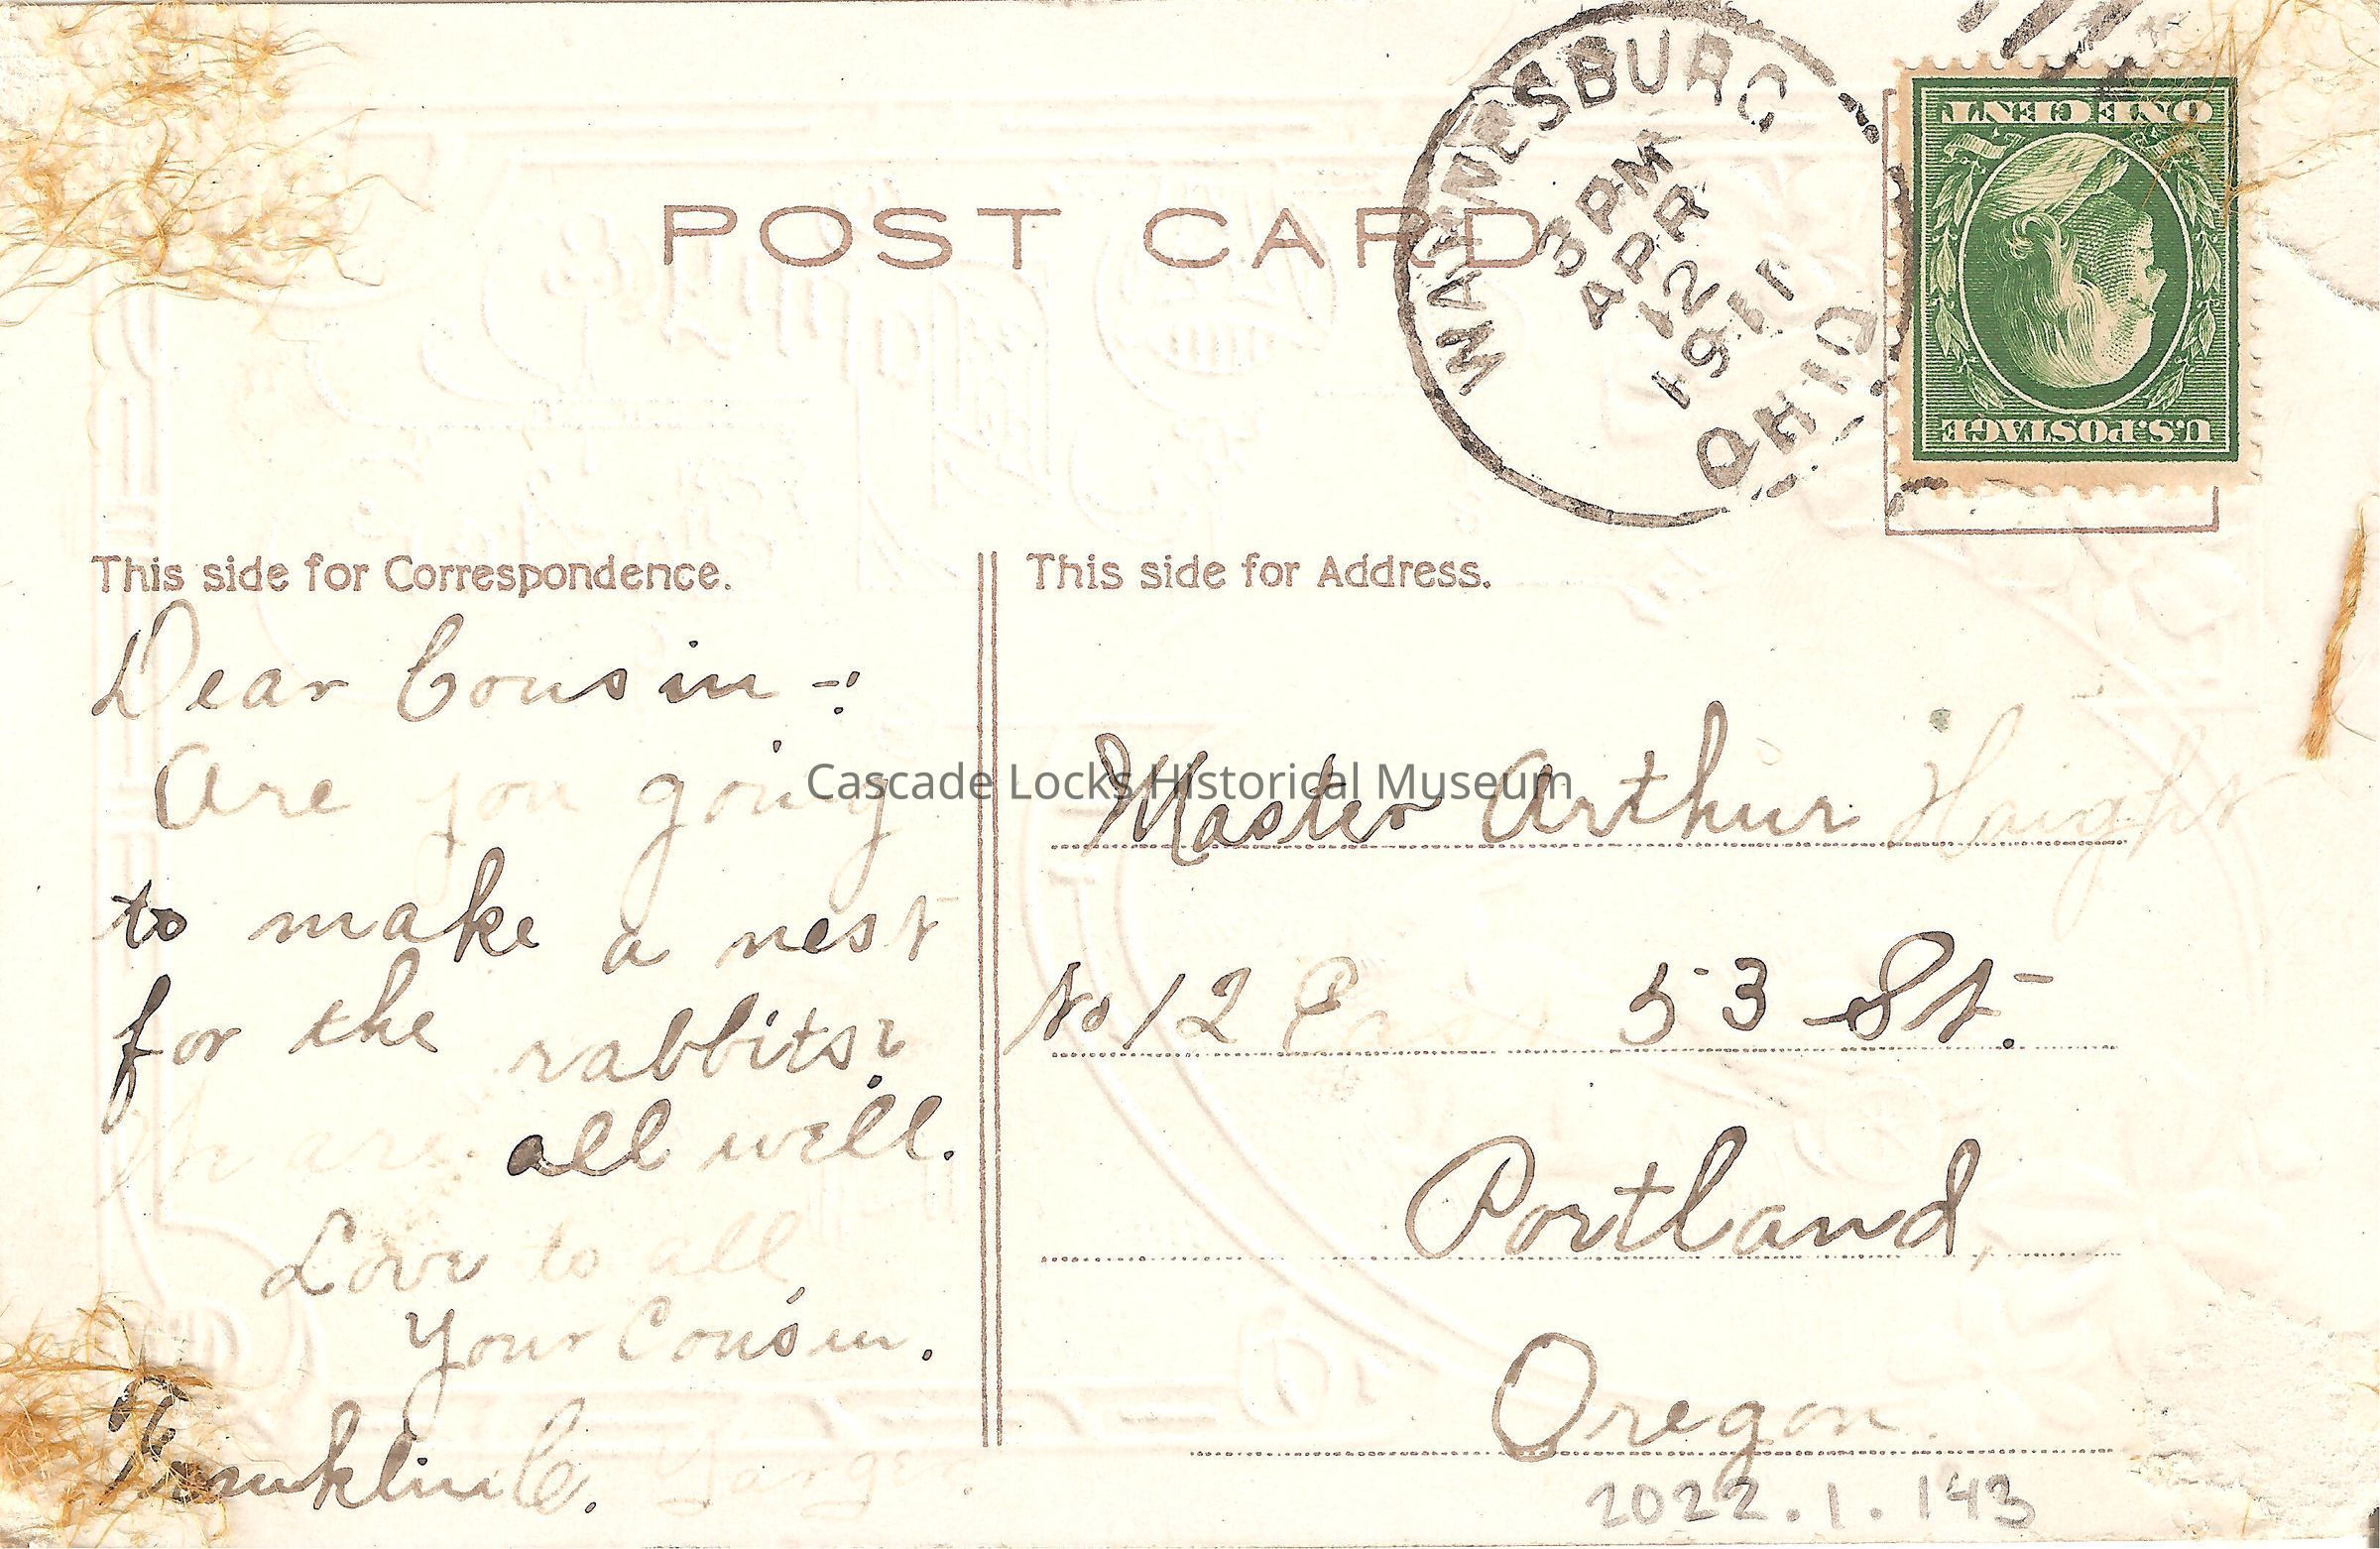 POST CARD
WAYNESBURG
3 PM
APR
12
1911
OHIO
ONE CENT
U.S. POSTAGE
This side for Correspondence.
This side for Address.
Dear Cousin -:
Are you going
to make a nest
for the rabbits?
We are all well.
Love to all,
Your Cousin.
Franklin C.
Master Arthur Haight
No 12 Eas 53 St.
Portland,
Oregon.
2022.1.143
Cascade Locks Historical Museum